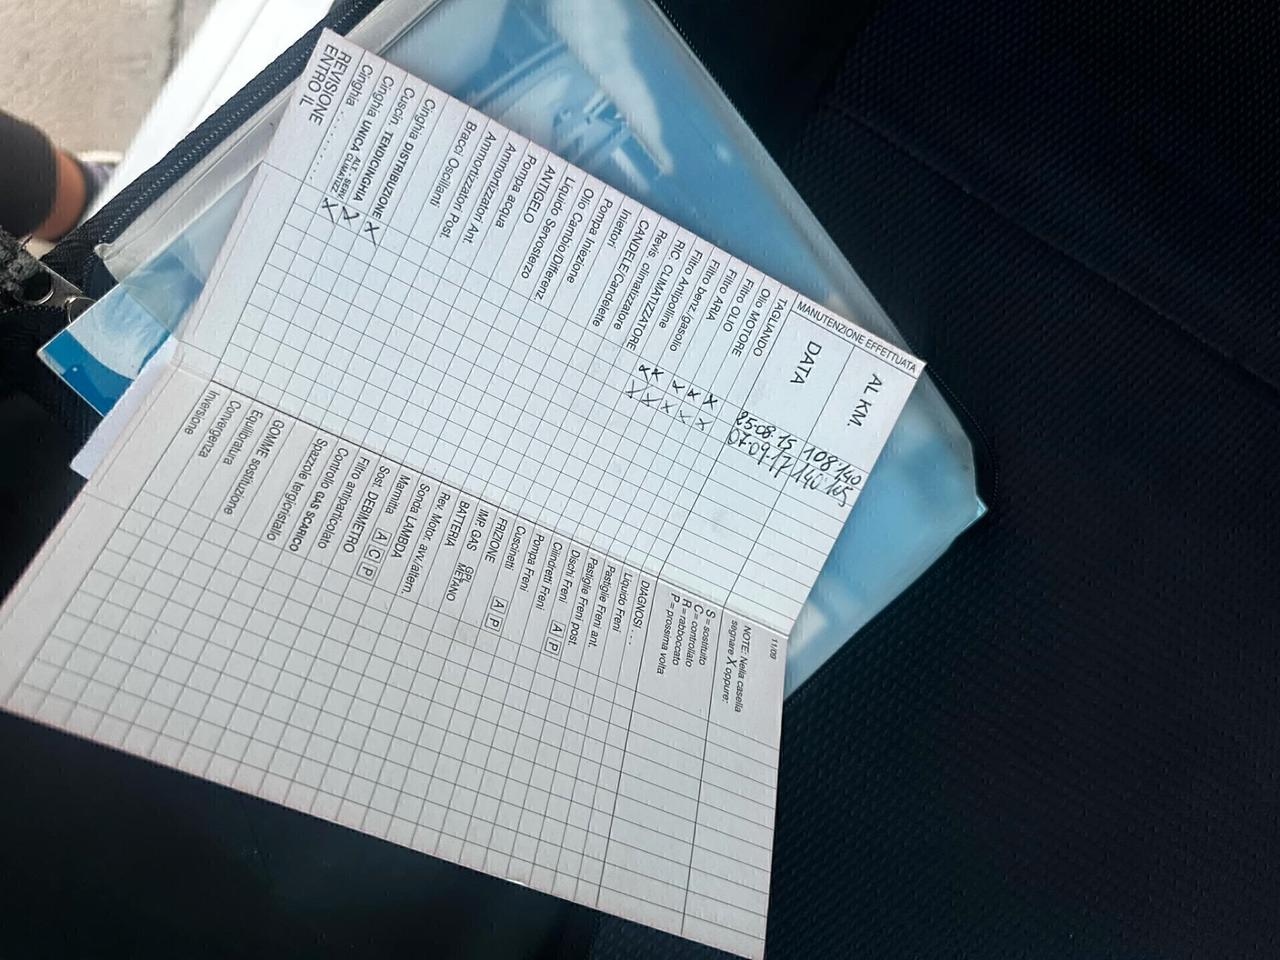 MANUTENZIONE EFFETTUATA
AL KM. 108140 140 165
DATA 25.08.15 07.09.17
TAGLIANDO
Olio MOTORE X X
Filtro OLIO X X
Filtro ARIA X X
Filtro benz./gasolio X X
Filtro Antipolline X X
RIC. CLIMATIZZATORE
Revis. climatizzatore
CANDELE/Candelette
Iniettori
Pompa Iniezione
Olio Cambio/Differenz.
Liquido Servosterzo
ANTIGELO
Pompa acqua
Ammortizzatori Ant.
Ammortizzatori Post.
Bracci Oscillanti
Cinghia DISTRIBUZIONE X
Cuscin. TENDICINGHIA X
Cinghia UNICA ALT. - SERV. CLIMATIZZ. X
Cinghia ..........
REVISIONE
ENTRO IL
11/09
NOTE: Nella casella
segnare X oppure:
S = sostituito
C = controllato
R = rabboccato
P = prossima volta
DIAGNOSI ....
Liquido Freni
Pastiglie Freni ant.
Pastiglie Freni post.
Dischi Freni A P
Cilindretti Freni
Pompa Freni
Cuscinetti A P
FRIZIONE
IMP. GAS GPL METANO
BATTERIA
Rev. Motor. avv/altern.
Sonda LAMBDA
Marmitta A C P
Sost. DEBIMETRO
Filtro antiparticolato
Controllo GAS SCARICO
Spazzole tergicristallo
GOMME sostituzione
Equilibratura
Convergenza
Inversione